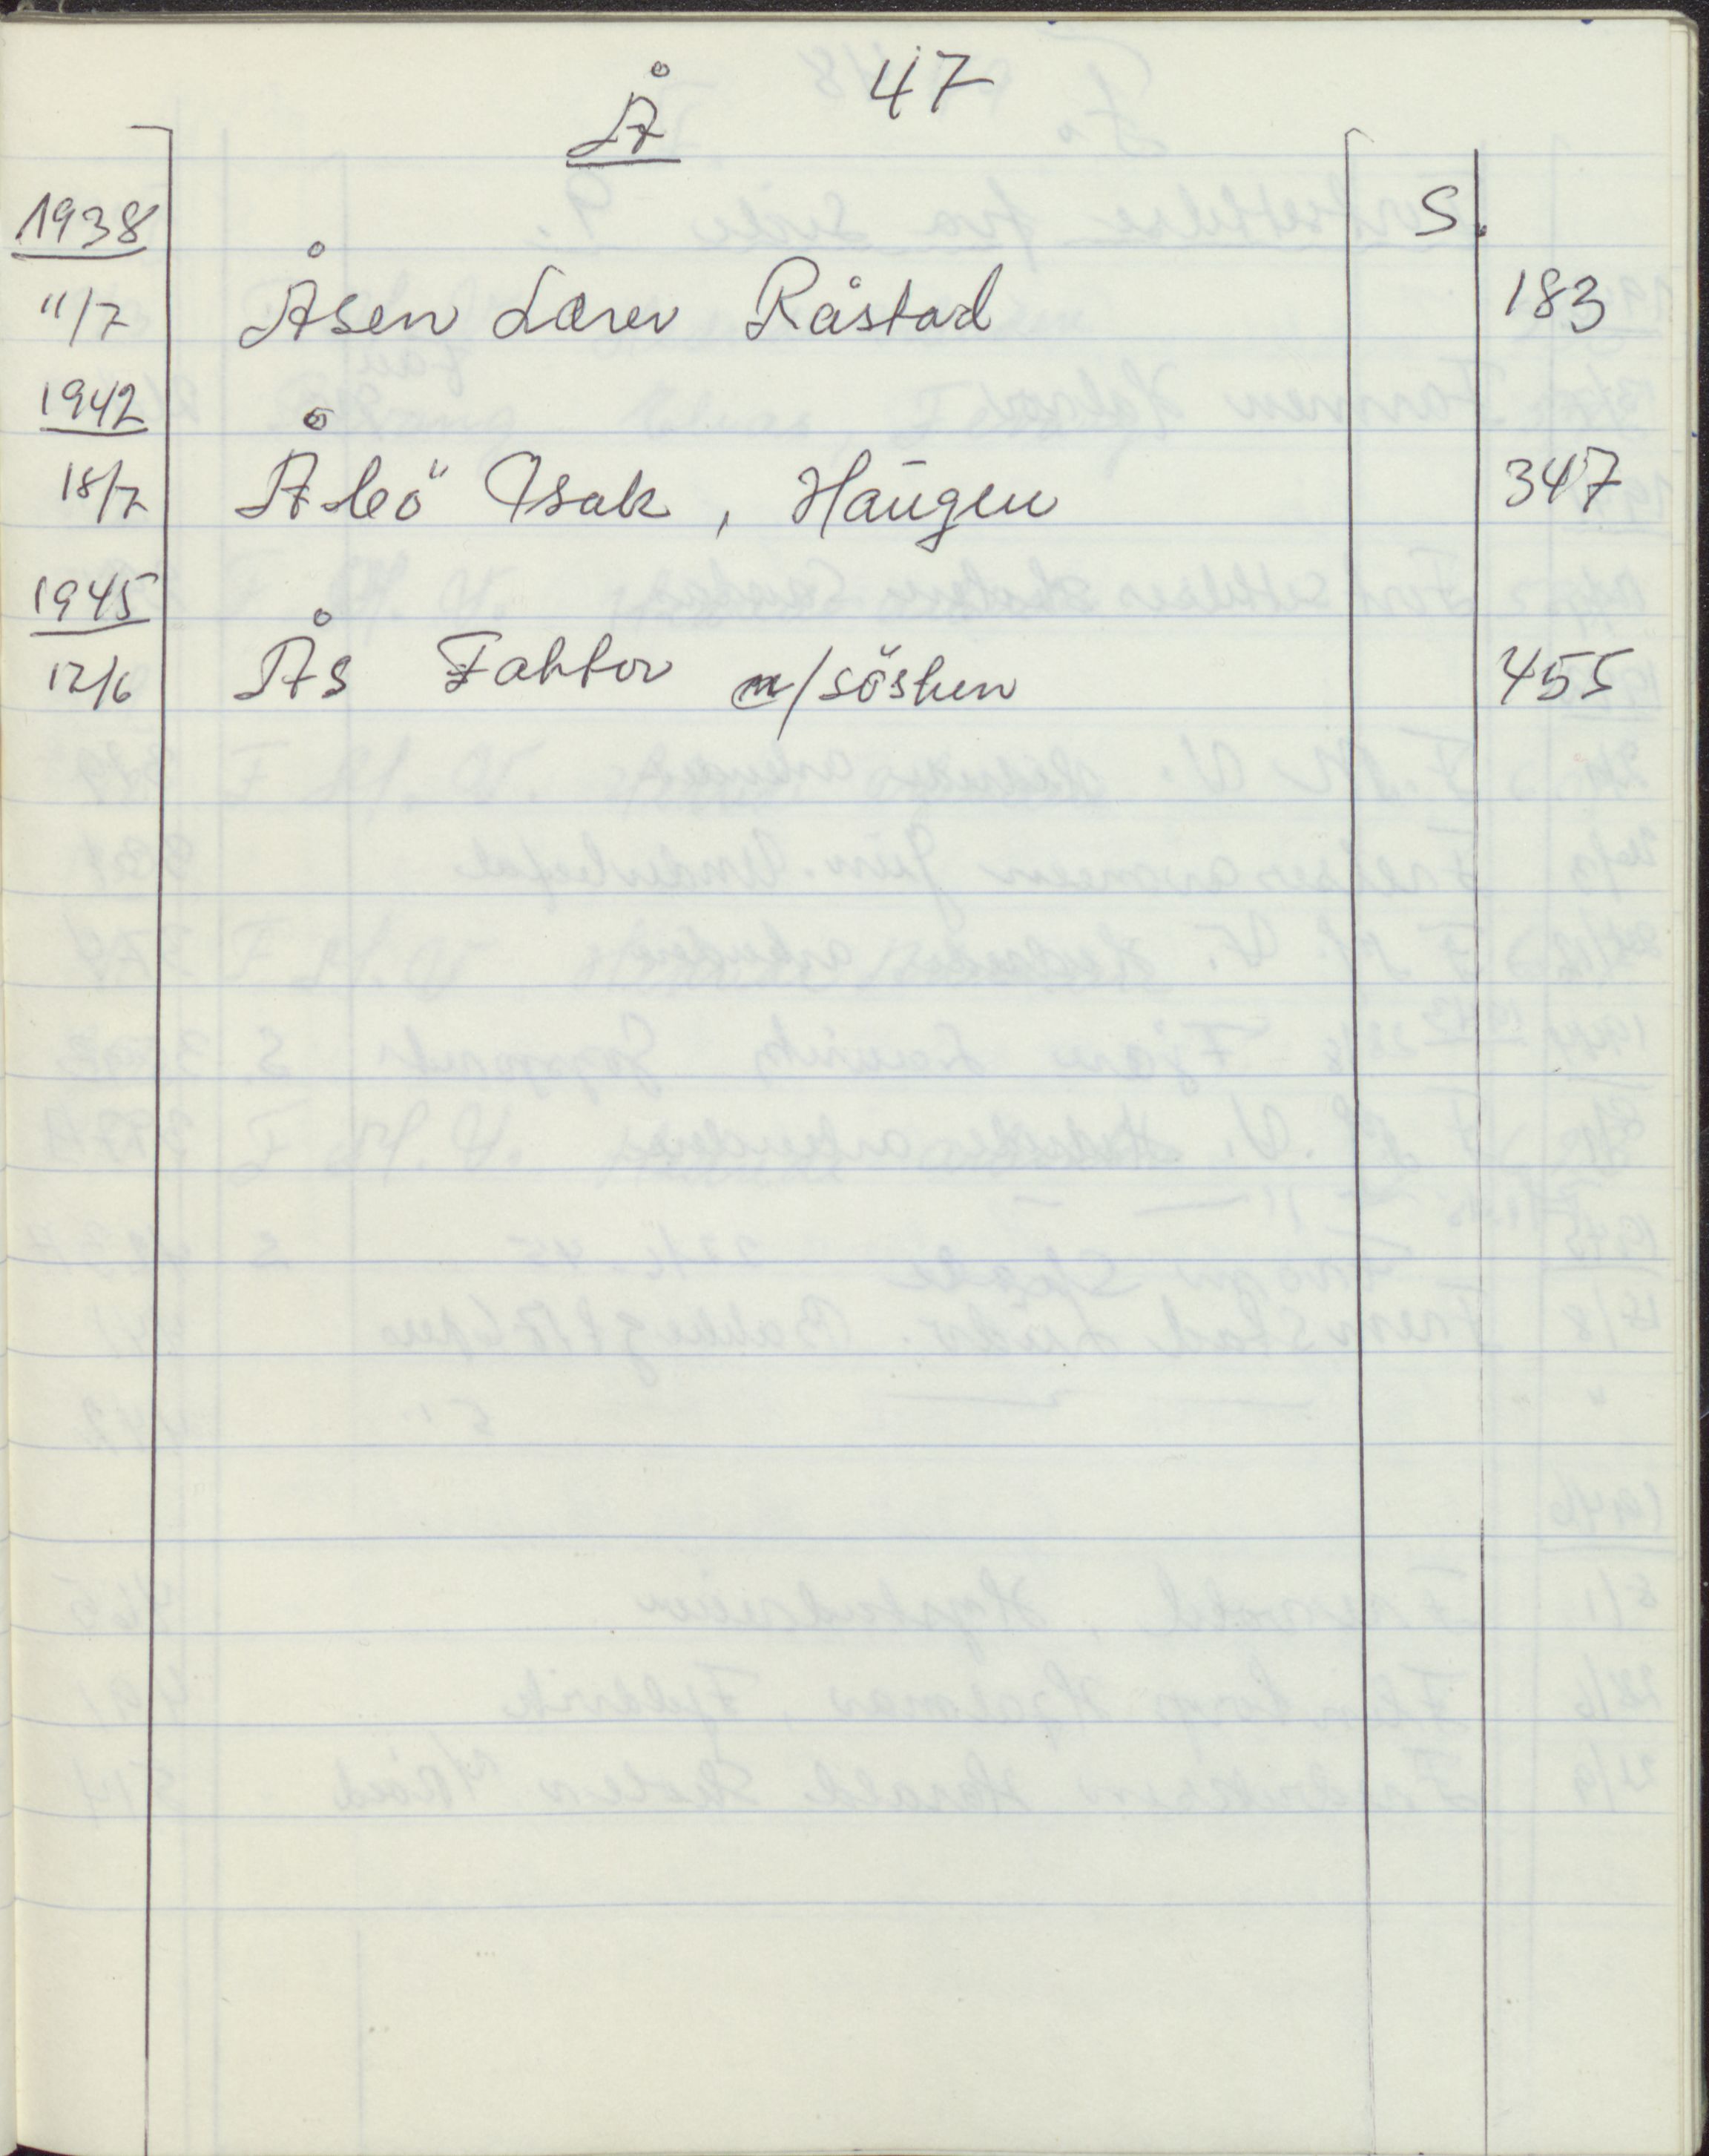 Å 47
1938 S.
11/7 Åsen Lærer Råstad 183
1942
18/7 Åbö Isak, Haugen 347
1945
12/6 Ås Faktor m/sösken 455